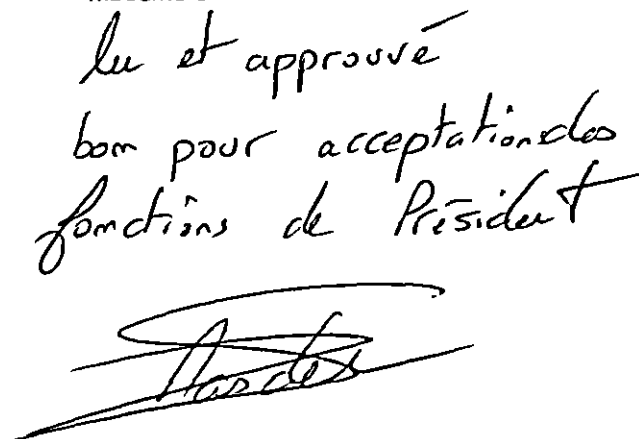 lu et approuvé
bon pour acceptation des
fonctions de Président